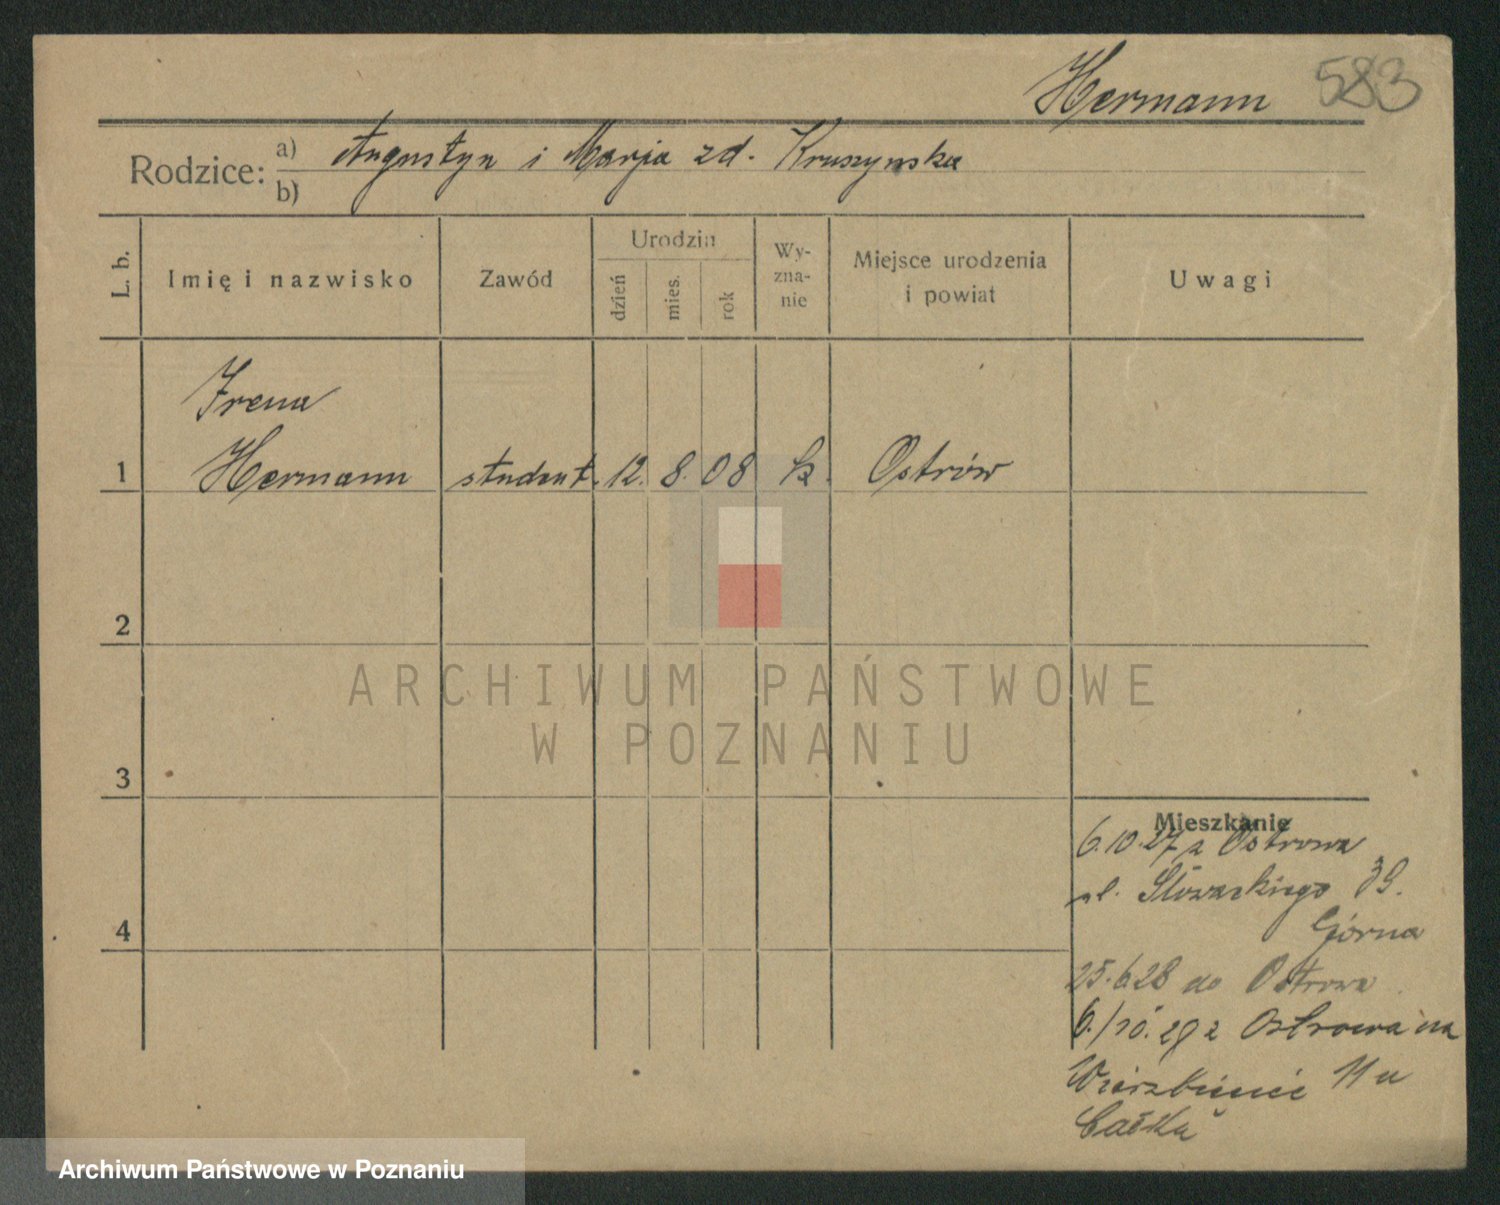 Hermann 583
Rodzice: a) Augustyn i Marja zd. Kruszynska
b)
L. b. Imię i nazwisko Zawód Urodzin dzień mies. rok Wy-zna-nie Miejsce urodzenia i powiat Uwagi
Irena
1 Hermann student. 12. 8. 08 k. Ostrów
2
ARCHIWUM PAŃSTWOWE
W POZNANIU
3
Mieszkanie
6.10.27 z Ostrowa
ul. Słowackiego 39.
4
Górna
25.6.28 do Ostrowa
6./10. 28 z Ostrowa na
Wierzbięcice 11 u
Archiwum Państwowe w Poznaniu